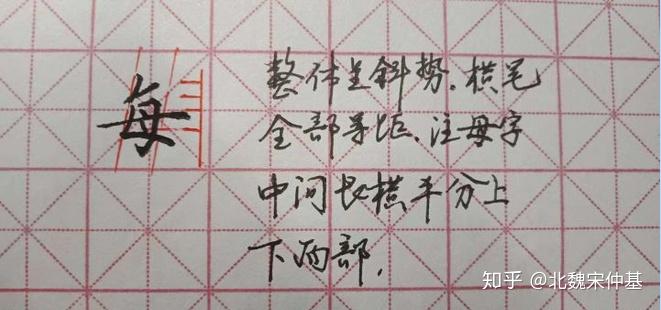 每
整体呈斜势.横笔
全部等距.注母字
中间长横平分上
下两部.
知乎 @北魏宋仲基